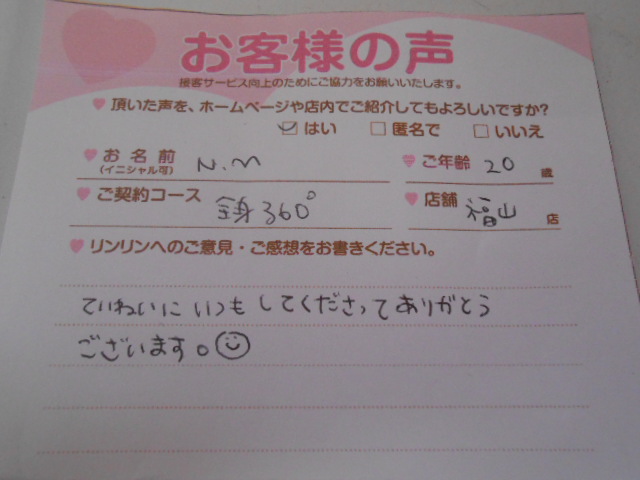 お客様の声
接客サービス向上のためにご協力をお願いいたします。
頂いた声を、ホームページや店内でご紹介してもよろしいですか?
はい 匿名で いいえ
お名前 (イニシャル可) N.M ご年齢 20 歳
ご契約コース 全身360° 店舗 福山 店
リンリンへのご意見・ご感想をお書きください。
ていねいにいつもしてくださってありがとう
ございます。